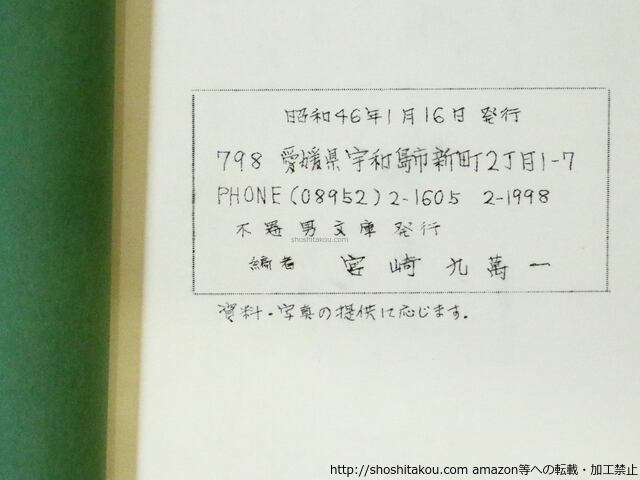 昭和46年1月16日 発行
798 愛媛県宇和島市新町2丁目1-7
PHONE(08952)2-1605 2-1998
不器男文庫 発行
shoshitakou.com
編者 宮崎九萬一
資料・写真の提供に応じます.
http://shoshitakou.com amazon等への転載・加工禁止